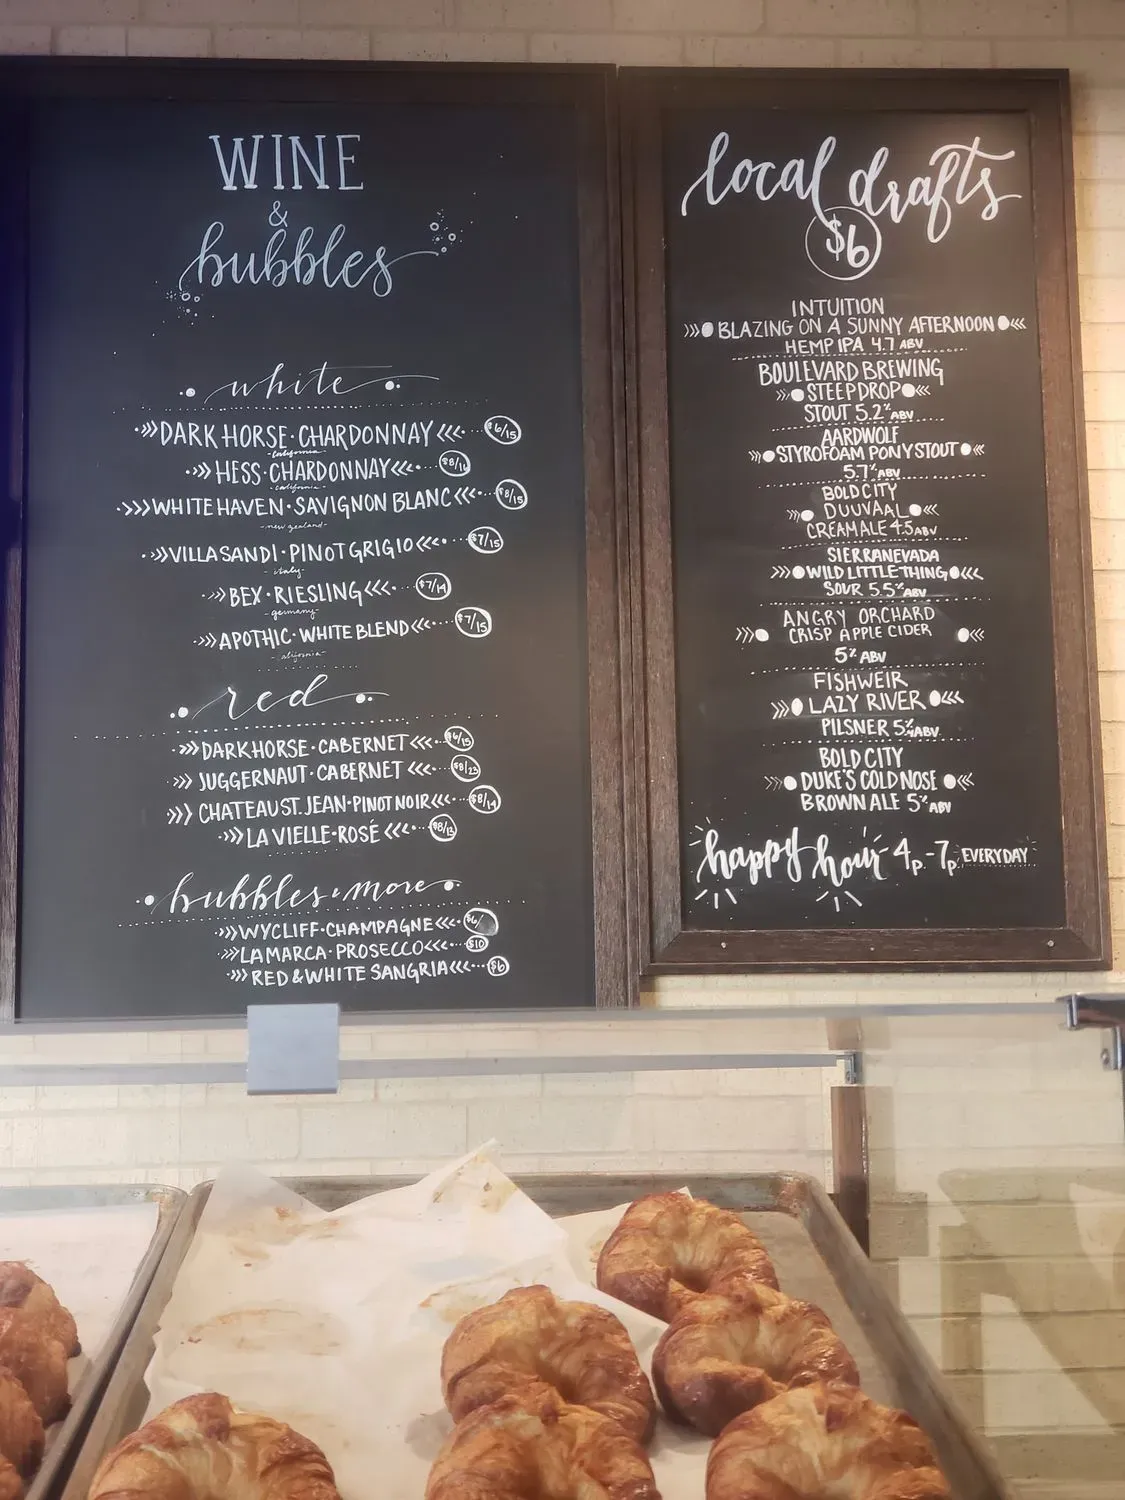 WINE
&
bubbles
white
DARK HORSE · CHARDONNAY $6/15
california
HESS · CHARDONNAY
california
WHITEHAVEN · SAVIGNON BLANC $8/15
-new zealand-
VILLA SANDI · PINOT GRIGIO $7/15
-italy-
BEX · RIESLING $7/14
-germany-
APOTHIC · WHITE BLEND $7/15
red
DARKHORSE · CABERNET $6/15
JUGGERNAUT · CABERNET $8/23
CHATEAU ST. JEAN · PINOT NOIR $8/14
LA VIELLE · ROSÉ
bubbles & more
WYCLIFF · CHAMPAGNE $6/
LAMARCA · PROSECCO $10
RED & WHITE SANGRIA $6
local drafts
$6
INTUITION
BLAZING ON A SUNNY AFTERNOON
HEMP IPA 4.7 ABV
BOULEVARD BREWING
STEEPDROP
STOUT 5.2% ABV
AARDWOLF
STYROFOAM PONY STOUT
5.7% ABV
BOLD CITY
DUUVAAL
CREAM ALE 4.5 ABV
SIERRA NEVADA
WILD LITTLE THING
SOUR 5.5% ABV
ANGRY ORCHARD
CRISP APPLE CIDER
5% ABV
FISHWEIR
LAZY RIVER
PILSNER 5% ABV
BOLD CITY
DUKE'S COLD NOSE
BROWN ALE 5% ABV
happy hour 4p-7p EVERYDAY